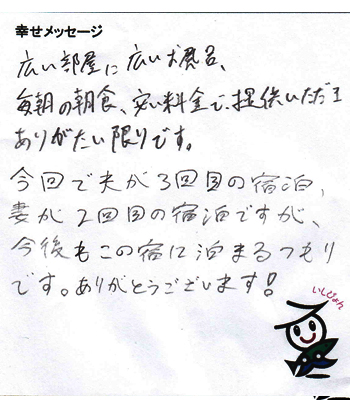 幸せメッセージ
広い部屋に広いお風呂、
毎朝の朝食、安い料金で、提供いただき
ありがたい限りです。
今回で夫が3回目の宿泊、
妻が2回目の宿泊ですが、
今後もこの宿に泊まるつもり
です。ありがとうございます!